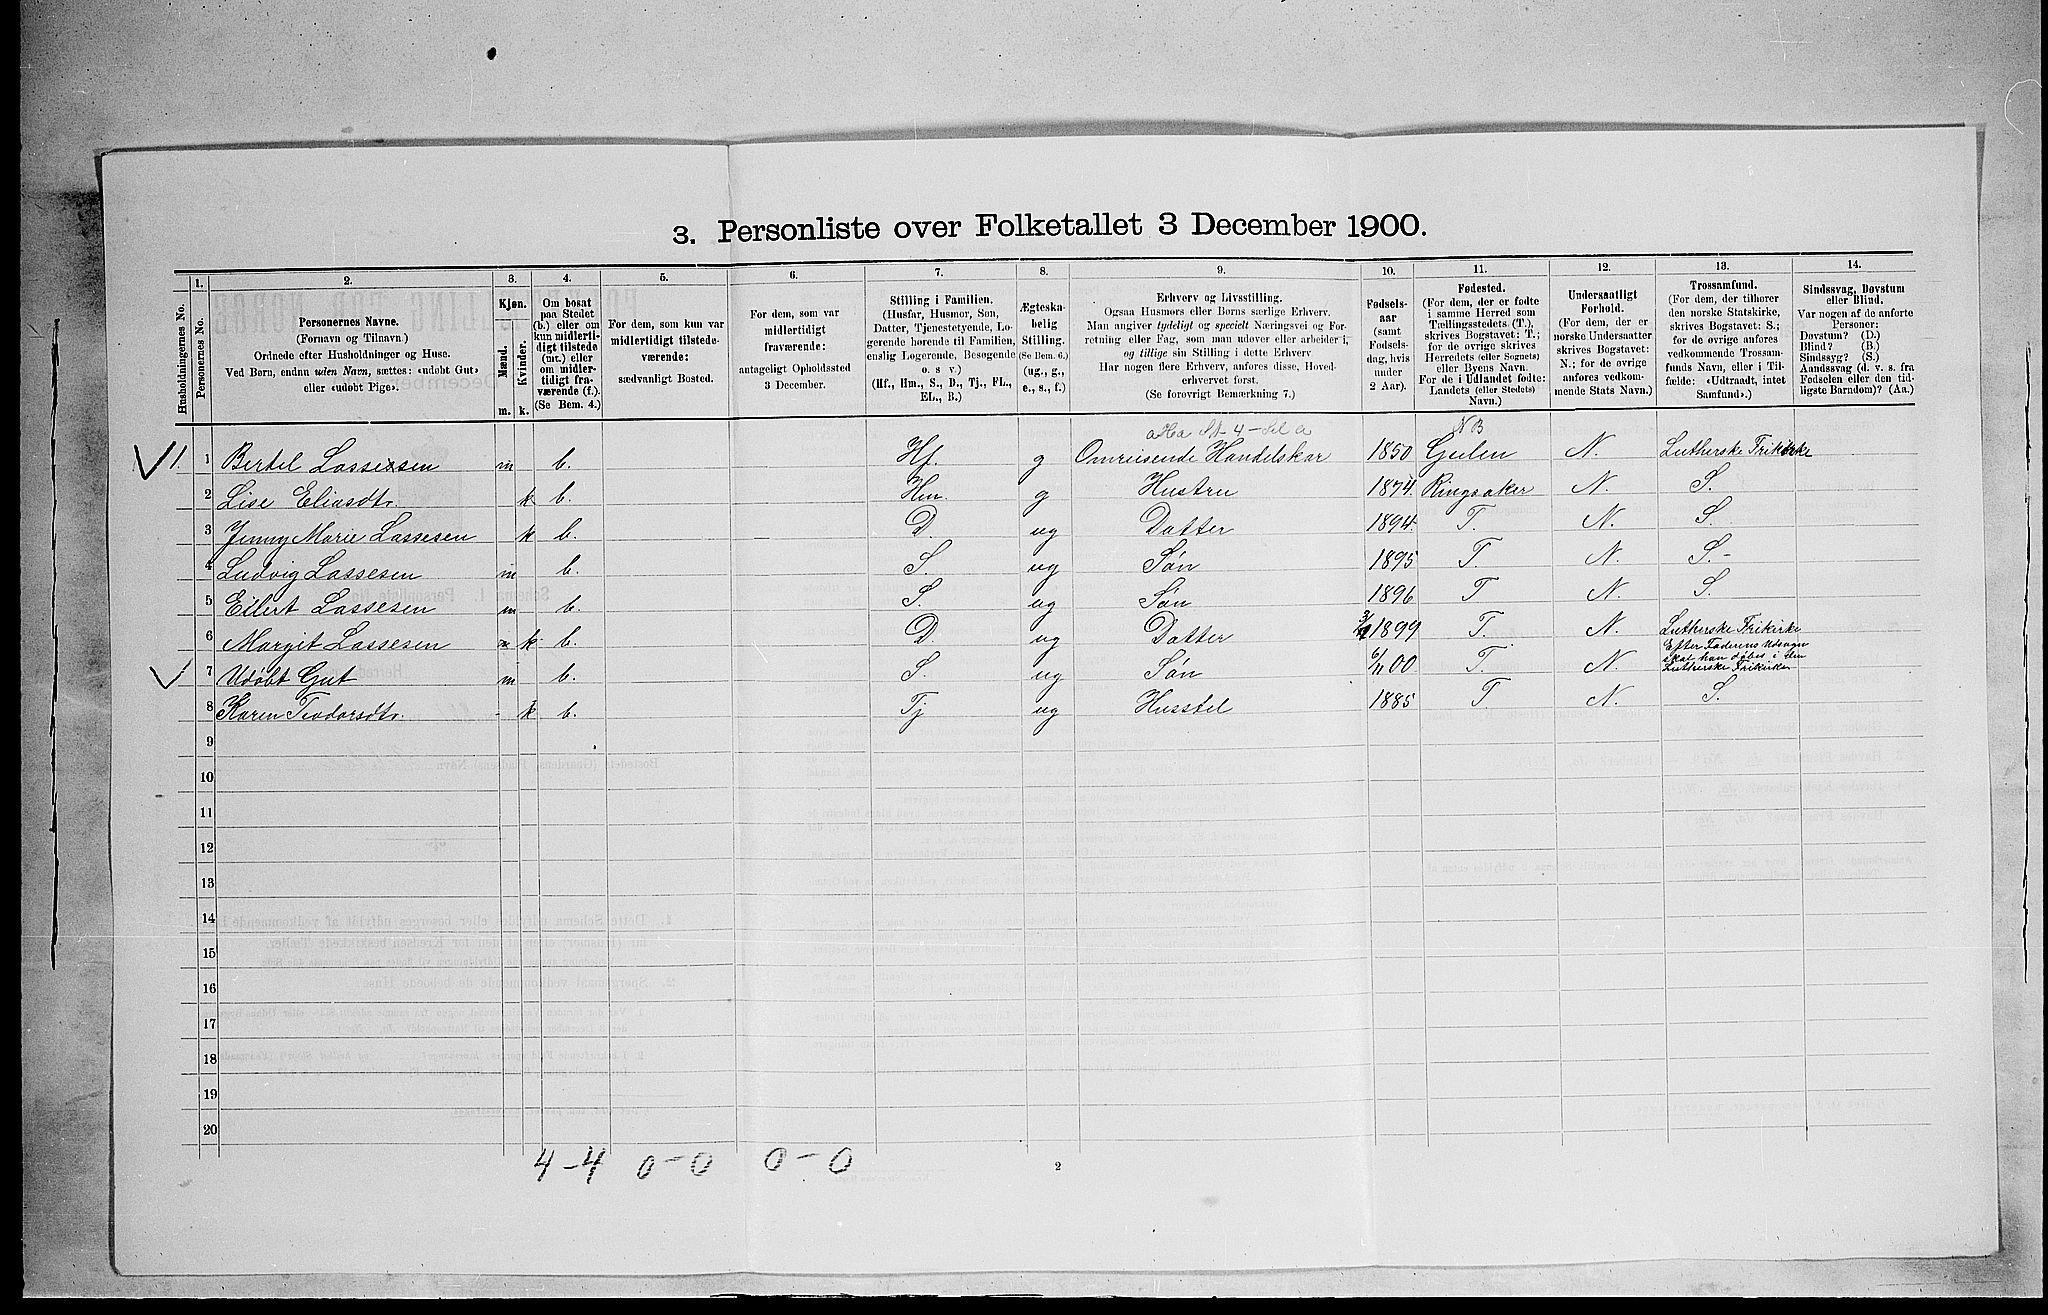 3. Personliste over Folketallet 3 December 1900.
1. 2. 3. 4. 5. 6. 7. 8. 9. 10. 11. 12. 13. 14.
Husholdningernes No.
Personernes No.
Personernes Navne.
(Fornavn og Tilnavn.)
Ordnede efter Husholdninger og Huse.
Ved Børn, endnu uden Navn, sættes: «udøbt Gut»
eller «udøbt Pige».
Kjøn.
Mænd.
Kvinder.
m. k.
Om bosat
paa Stedet
(b.) eller om
kun midlerti-
digt tilstede
(mt.) eller
om midler-
tidigt fra-
værende (f.).
(Se Bem. 4.)
For dem, som kun var
midlertidigt tilstede-
værende:
sædvanligt Bosted.
For dem, som var
midlertidigt
fraværende:
antageligt Opholdssted
3 December.
Stilling i Familien.
(Husfar, Husmor, Søn,
Datter, Tjenestetyende, Lo-
gerende hørende til Familien,
enslig Logerende, Besøgende
o. s. v.)
(Hf., Hm., S., D., Tj., FL.,
EL., B.)
Ægteska-
belig
Stilling.
(Se Bem. 6.)
(ug., g.,
e., s., f.)
Erhverv og Livsstilling.
Ogsaa Husmors eller Børns særlige Erhverv.
Man angiver tydeligt og specielt Næringsvei og For-
retning eller Fag, som man udøver eller arbeider i,
og tillige sin Stilling i dette Erhverv
Har nogen flere Erhverv, anføres disse, Hoved-
erhvervet først.
(Se forøvrigt Bemærkning 7.)
Fødsels-
aar
(samt
Fødsels-
dag, hvis
under
2 Aar).
Fødested.
(For dem, der er fødte
i samme Herred som
Tællingsstedets (T.),
skrives Bogstavet: T.;
for de øvrige skrives
Herredets (eller Sognets)
eller Byens Navn.
For de i Udlandet fødte:
Landets (eller Stedets)
Navn.)
Undersaatligt
Forhold.
(For dem, der er
norske Undersaatter
skrives Bogstavet:
N.; for de øvrige
anføres vedkom-
mende Stats Navn.)
Trossamfund.
(For dem, der tilhører
den norske Statskirke,
skrives Bogstavet: S.;
for de øvrige anføres
vedkommende Trossam-
funds Navn, eller i Til-
fælde: «Udtraadt, intet
Samfund».)
Sindssvag, Døvstum
eller Blind.
Var nogen af de anførte
Personer:
Døvstum? (D.)
Blind? (B.)
Sindssyg? (S.)
Aandssvag (d. v. s. fra
Fødselen eller den tid-
ligste Barndom)? (Aa.)
NB
1. 1 Bertel Lassesen m b. Hf. g Omreisende Handelskar 1850 Gulen N. Lutherske Frikirke
2 Lise Eliasdtr. k b. Hm. g Hustru 1874. Ringsaker N. S.
3 Jenny Marie Lassesen k b. D. ug Datter 1894. T. N. S.
4 Ludvig Lassesen m b. S. ug Søn 1895 T. N. S-
5 Eilert Lassesen m b. S. ug Søn 1896 T N. S.
6 Margit Lassesen k b. D. ug Datter 1899 T. N. Lutherske Frikirke
Efter Faderens Udsagn
skal han døbes i den
7 Udøbt Gut m b. S. ug Søn 6/11 00 T. N Lutherske Frikirke
8 Karen Teodorsdtr. - k b. Tj ug Husstel 1885 T N. S.
9
10
11
12
13
14
15
16
17
18
19
20
4-4 0-0 0-0
2